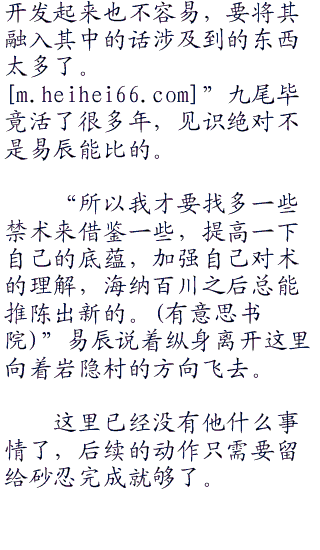 开发起来也不容易，要将其
融入其中的话涉及到的东西
太多了。
[m.heihei66.com]”九尾毕
竟活了很多年，见识绝对不
是易辰能比的。
“所以我才要找多一些
禁术来借鉴一些，提高一下
自己的底蕴，加强自己对术
的理解，海纳百川之后总能
推陈出新的。(有意思书
院)”易辰说着纵身离开这里
向着岩隐村的方向飞去。
这里已经没有他什么事
情了，后续的动作只需要留
给砂忍完成就够了。